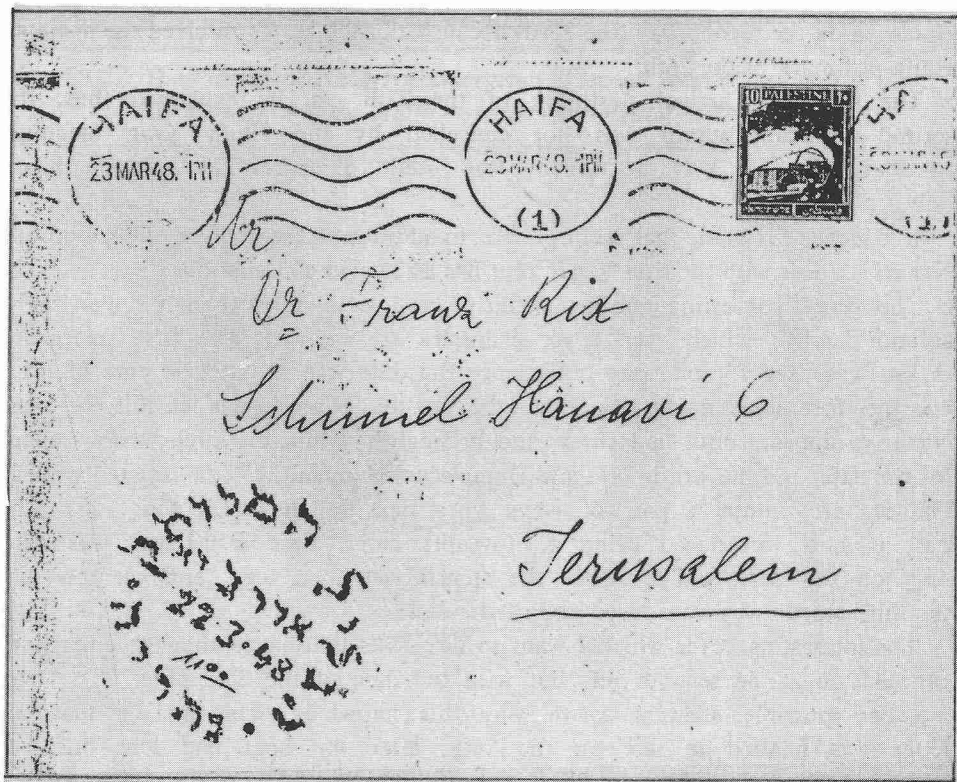 HAIFA
23 MAR 48. 1PM
HAIFA
23 MAR 48. 1PM
(1)
10 PALESTINE
HA
(1)
Mr
Dr Franz Rix
Schmuel Hanavi 6
Jerusalem
22.3.48
1100